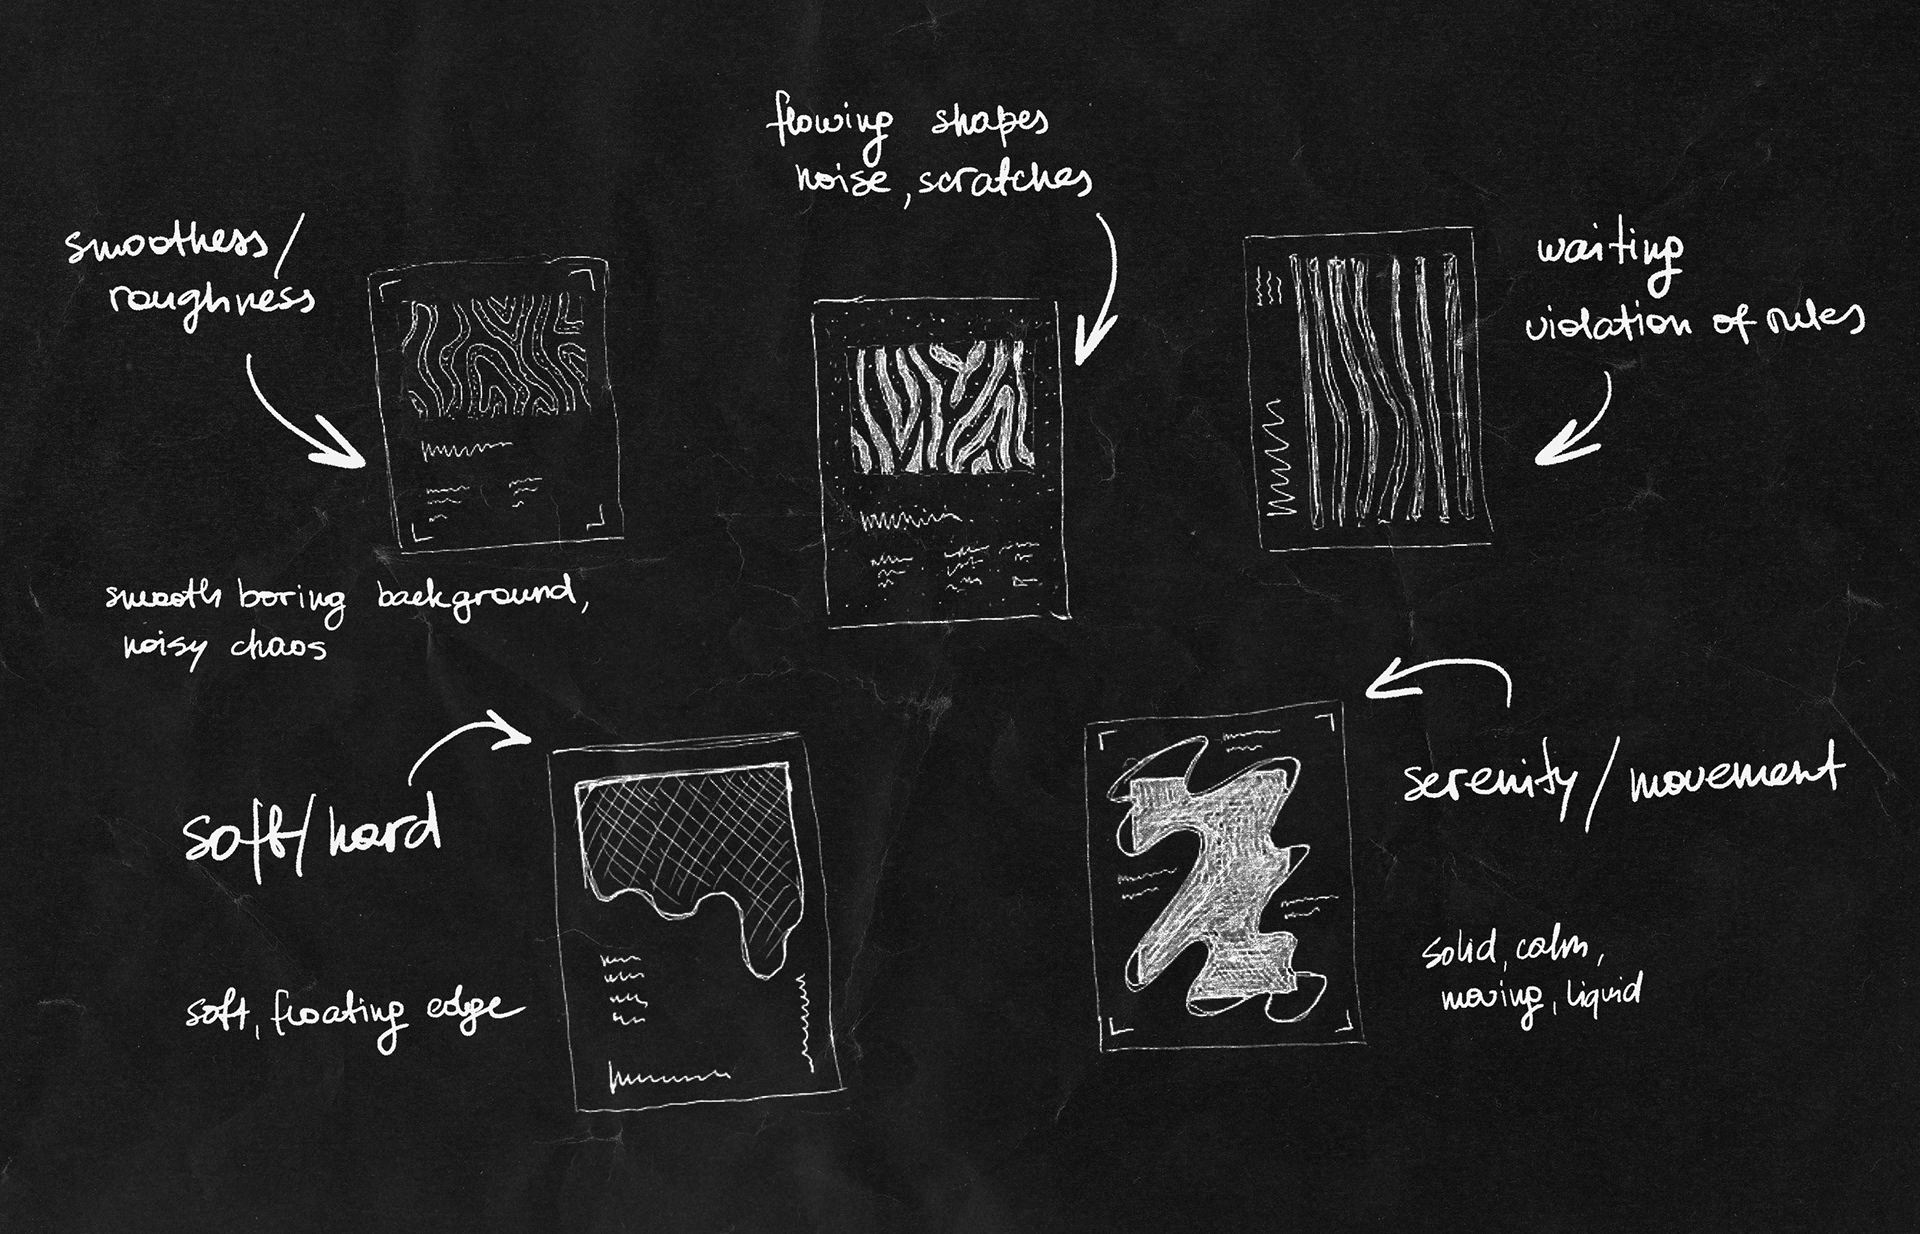 flowing shapes
noise, scratches
smoothess/
roughness
waiting
violation of rules
smooth boring background,
noisy chaos
soft/hard
serenity/movement
soft, floating edge
solid, calm,
moving, liquid